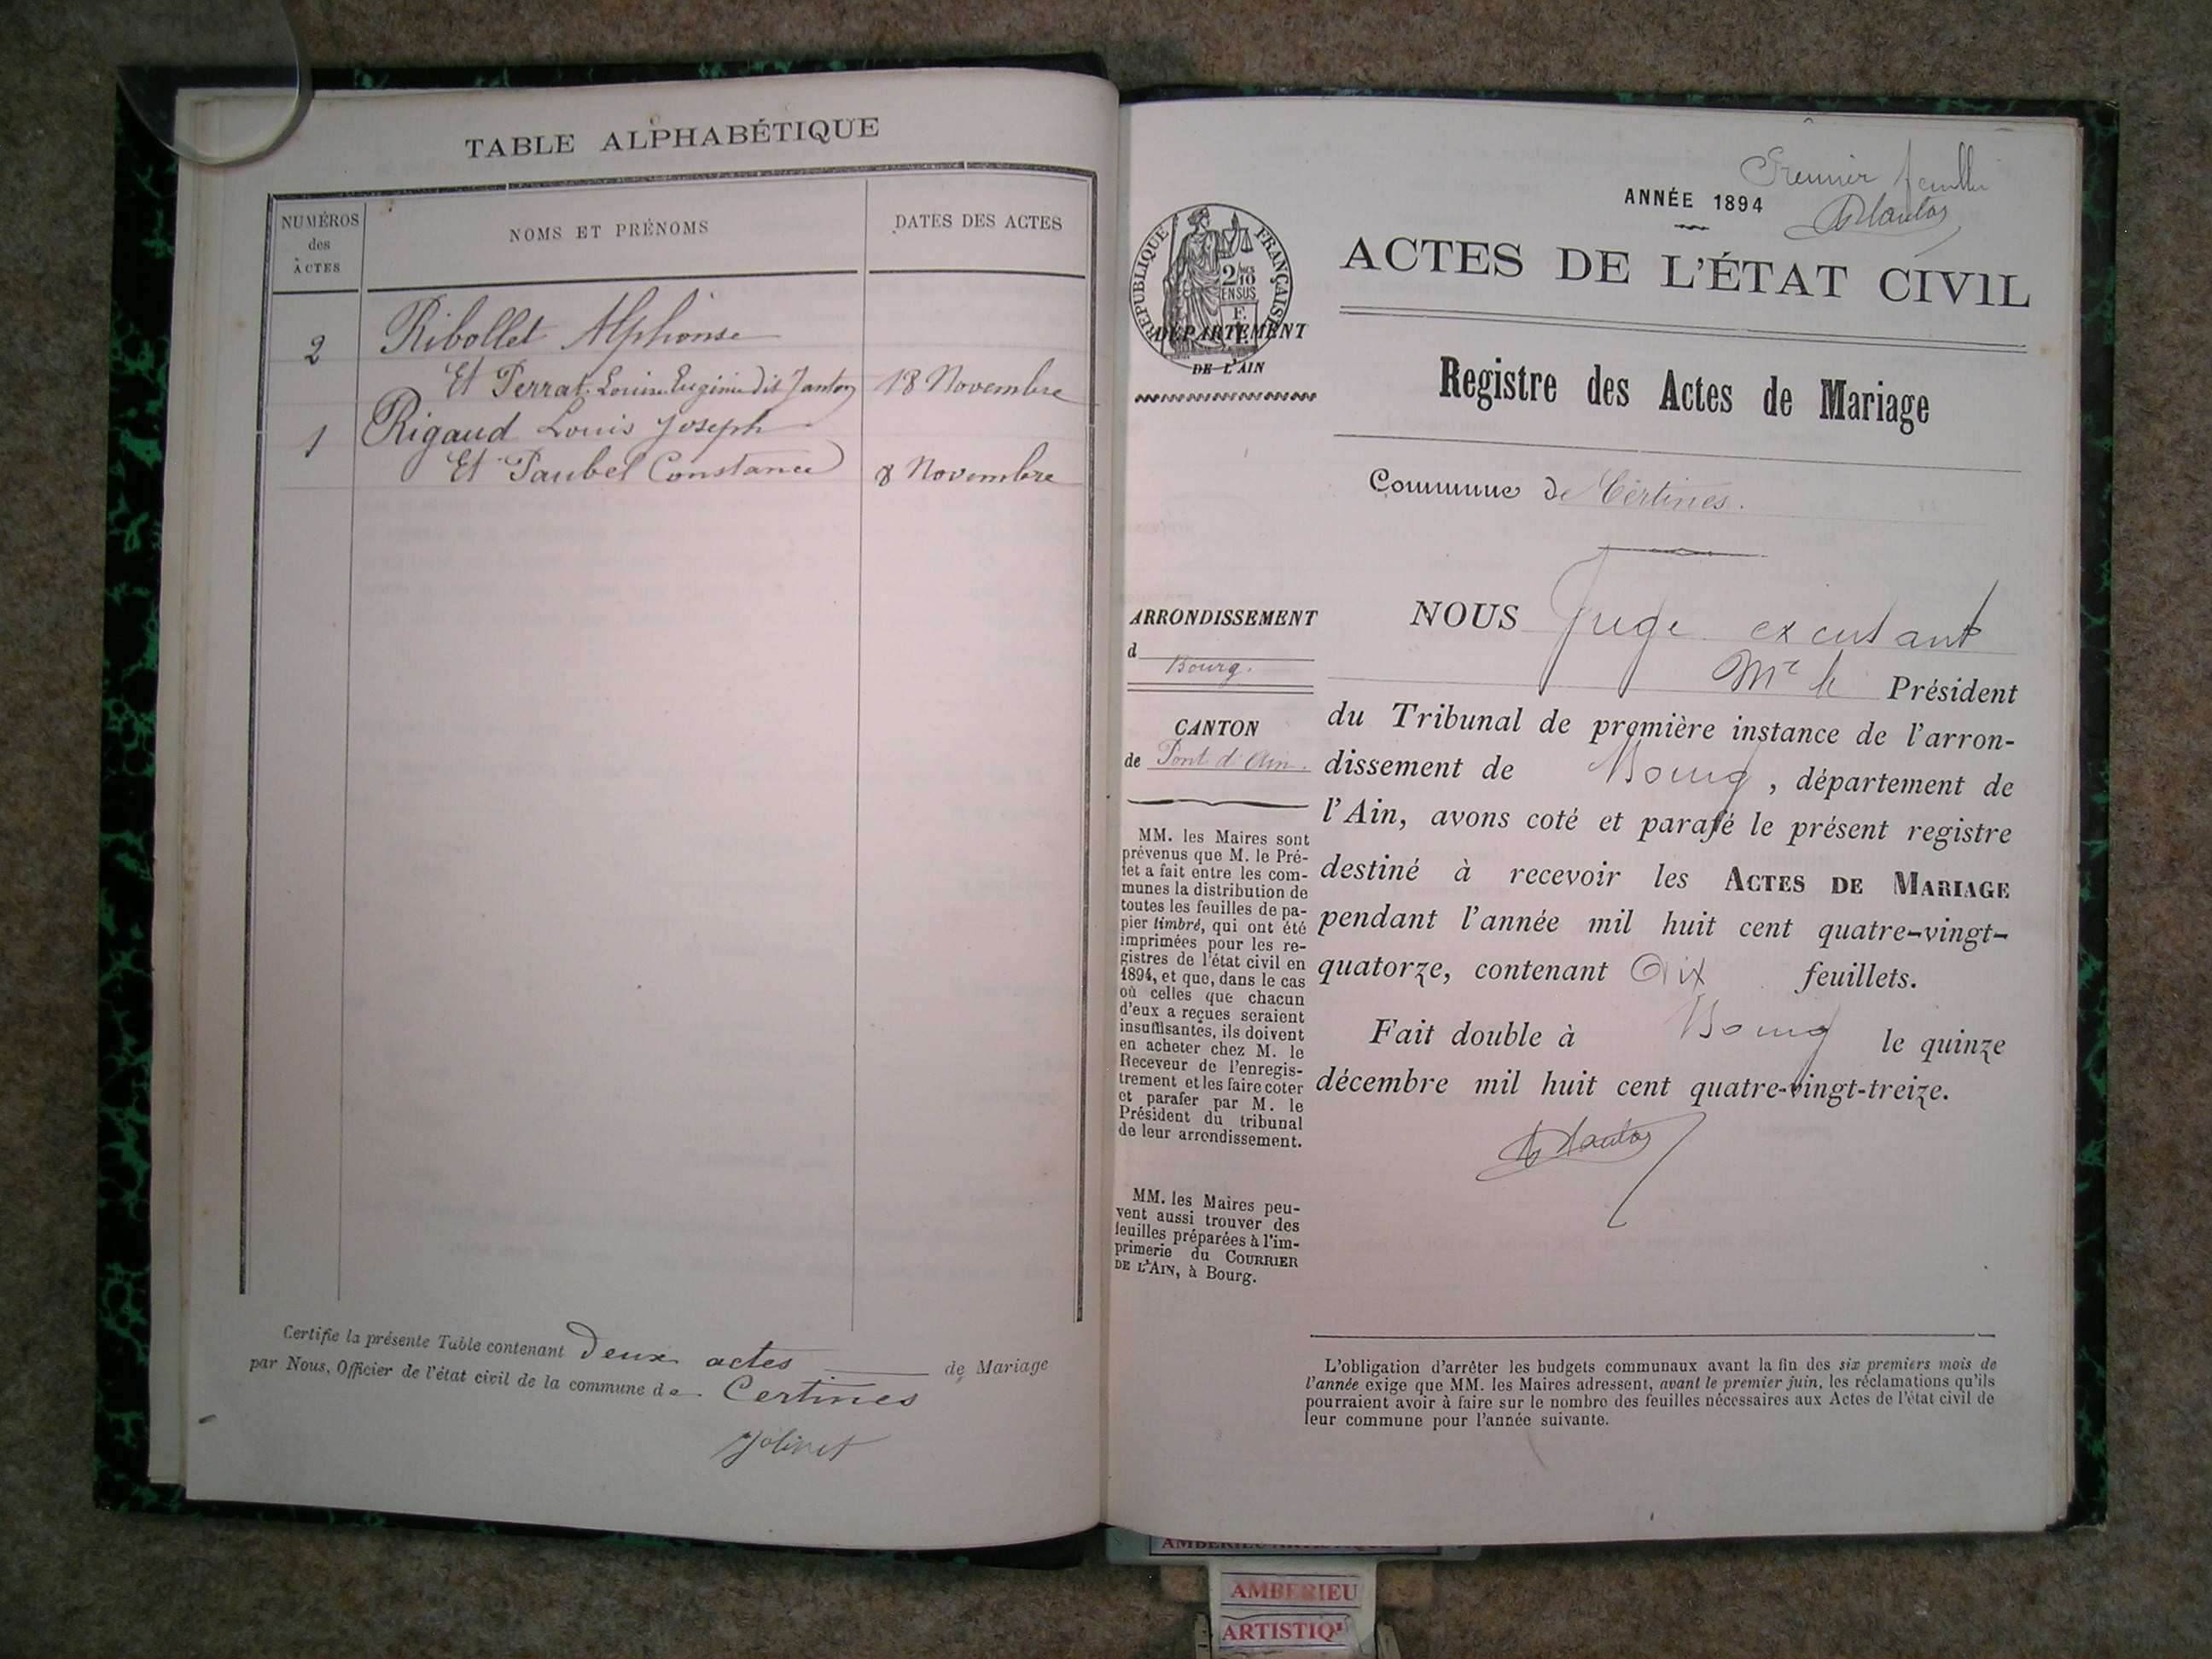 TABLE ALPHABÉTIQUE
NUMÉROS
des
ACTES
NOMS ET PRÉNOMS
DATES DES ACTES
2 Ribollet Alphonse
Et Perrat Louise Eugénie dit Janton 18 Novembre
1 Rigaud Louis Joseph
Et Paubel Constance 8 Novembre
Certifie la présente Table contenant deux actes de Mariage
par Nous, Officier de l'état civil de la commune de Certines
Jolivet
Premier feuillet
ANNÉE 1894
ACTES DE L'ÉTAT CIVIL
RÉPUBLIQUE FRANÇAISE
DÉPARTEMENT
DE L'AIN
Registre des Actes de Mariage
Commune de Certines.
ARRONDISSEMENT
d
Bourg.
CANTON
de Pont d'Ain.
MM. les Maires sont
prévenus que M. le Pré-
fet a fait entre les com-
munes la distribution de
toutes les feuilles de pa-
pier timbré, qui ont été
imprimées pour les re-
gistres de l'état civil en
1894, et que, dans le cas
où celles que chacun
d'eux a reçues seraient
insuffisantes, ils doivent
en acheter chez M. le
Receveur de l'enregis-
trement et les faire coter
et parafer par M. le
Président du tribunal
de leur arrondissement.
MM. les Maires peu-
vent aussi trouver des
feuilles préparées à l'im-
primerie du COURRIER
DE L'AIN, à Bourg.
NOUS Juge excusant
Mr le Président
du Tribunal de première instance de l'arron-
dissement de Bourg, département de
l'Ain, avons coté et parafé le présent registre
destiné à recevoir les ACTES DE MARIAGE
pendant l'année mil huit cent quatre-vingt-
quatorze, contenant Dix feuillets.
Fait double à Bourg le quinze
décembre mil huit cent quatre-vingt-treize.
L'obligation d'arrêter les budgets communaux avant la fin des six premiers mois de
l'année exige que MM. les Maires adressent, avant le premier juin, les réclamations qu'ils
pourraient avoir à faire sur le nombre des feuilles nécessaires aux Actes de l'état civil de
leur commune pour l'année suivante.
AMBERIEU
ARTISTIQ